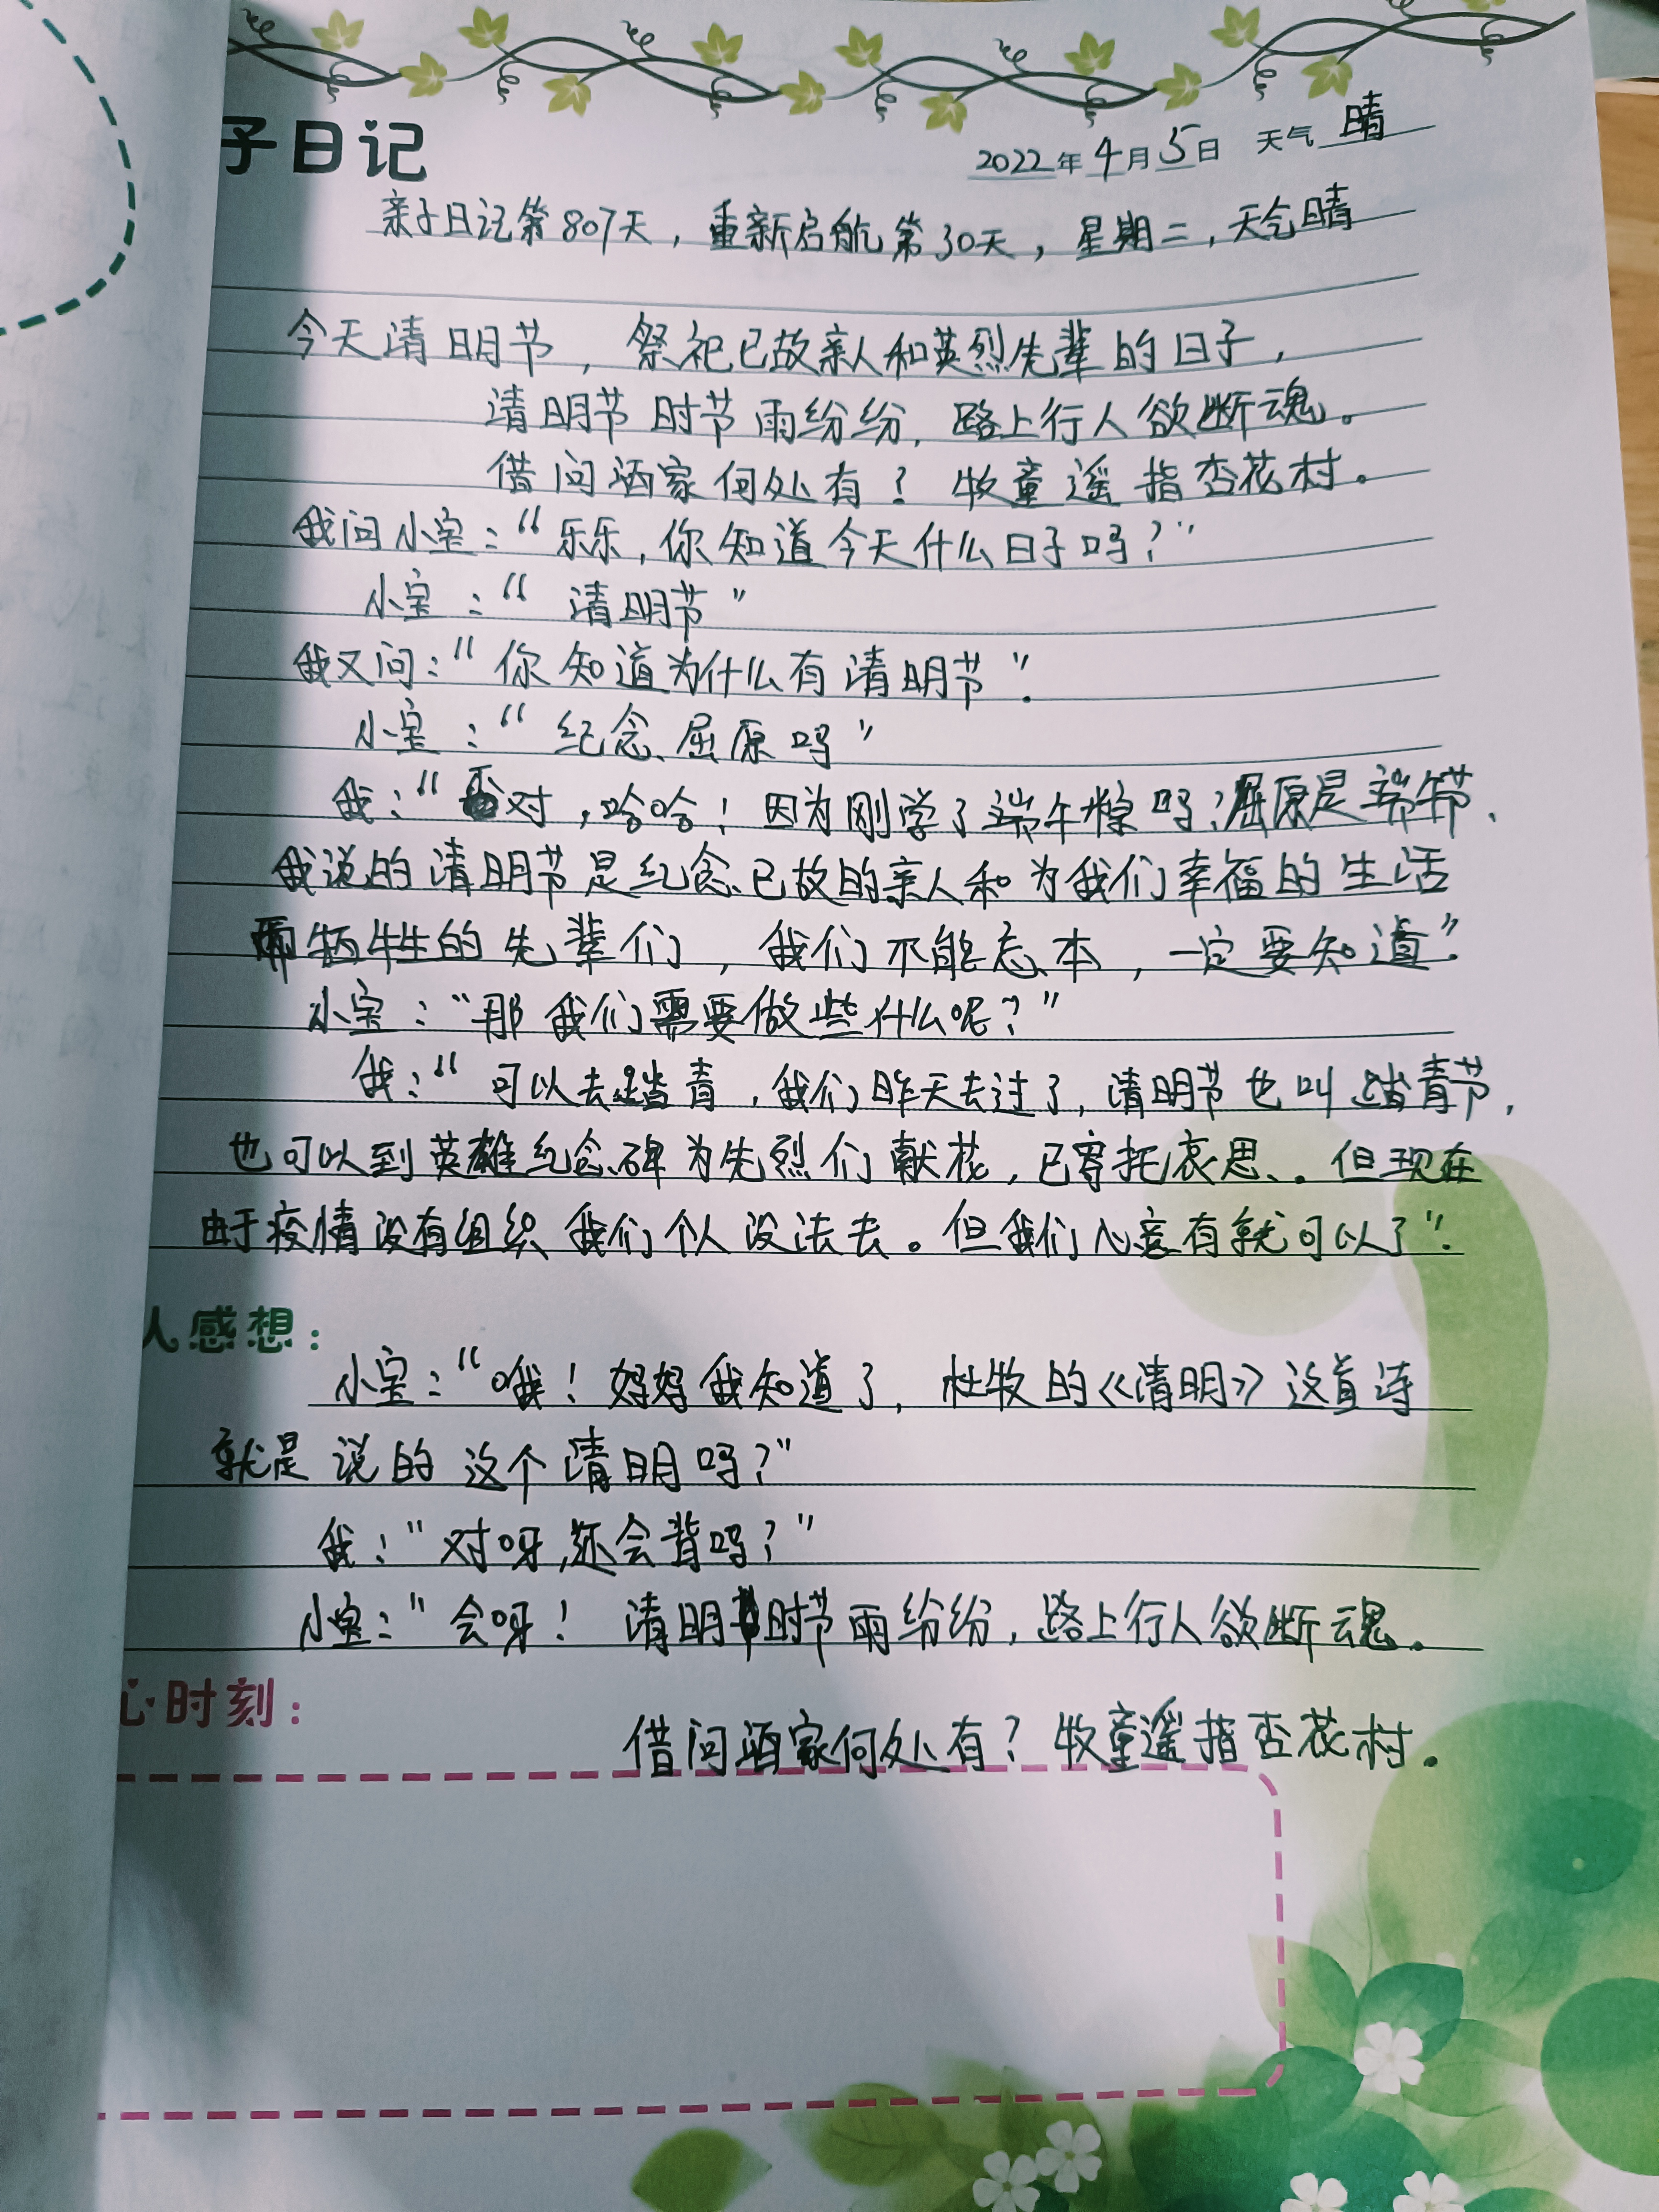 子日记
2022年4月5日 天气 晴
亲子日记第807天，重新启航第30天，星期二，天气晴
今天清明节，祭祀已故亲人和英烈先辈的日子，
清明节时节雨纷纷，路上行人欲断魂。
借问酒家何处有？牧童遥指杏花村。
我问小宝：“乐乐，你知道今天什么日子吗？”
小宝：“清明节”
我又问：“你知道为什么有清明节”.
小宝：“纪念屈原吗”
我：“对，哈哈！因为刚学了端午粽吗？屈原是端午节、
我说的清明节是纪念已故的亲人和为我们幸福的生活
而牺牲的先辈们，我们不能忘本，一定要知道”.
小宝：“那我们需要做些什么呢？”
我：“可以去踏青，我们昨天去过了，清明节也叫踏青节，
也可以到英雄纪念碑为先烈们献花，已寄托哀思。但现在
由于疫情没有组织我们个人没法去。但我们心意有就可以了”.
人感想：
小宝：“哦！妈妈我知道了，杜牧的《清明》这首诗
就是说的这个清明吗？”
我：“对呀，还会背吗？”
小宝：“会呀！清明时节雨纷纷，路上行人欲断魂。
心时刻：
借问酒家何处有？牧童遥指杏花村。